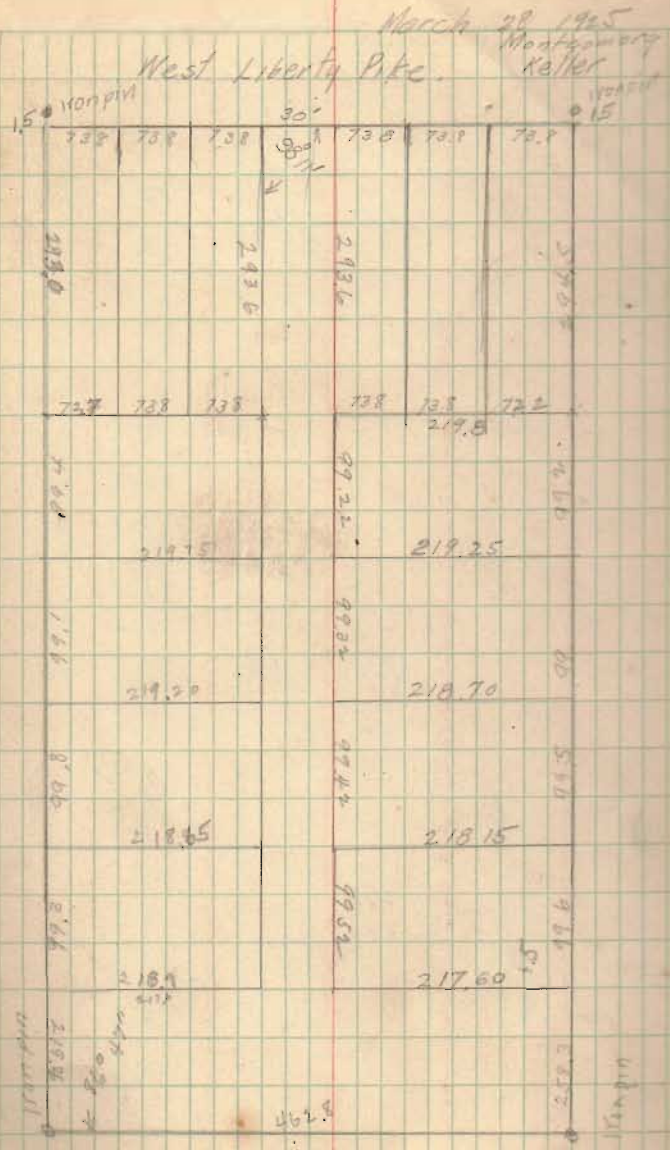 March 28 1925
Montgomery
Keller
West Liberty Pike.
1.5 Iron pin
30'
Iron pin
15
73.8 73.8 73.8 73.8 73.8 73.8
90°
293.0
293.6
293.6
294.5
73.7 73.8 73.8 73.8 73.8 72.2
219.8
99.22
99.2
219.75
219.25
99.1
99.32
99
219.20
218.70
99.8
99.42
99.5
218.65
218.15
99.3
99.52
99.6
1.5
218.1
217.60
Iron pin
258.3
Iron pin
462.8